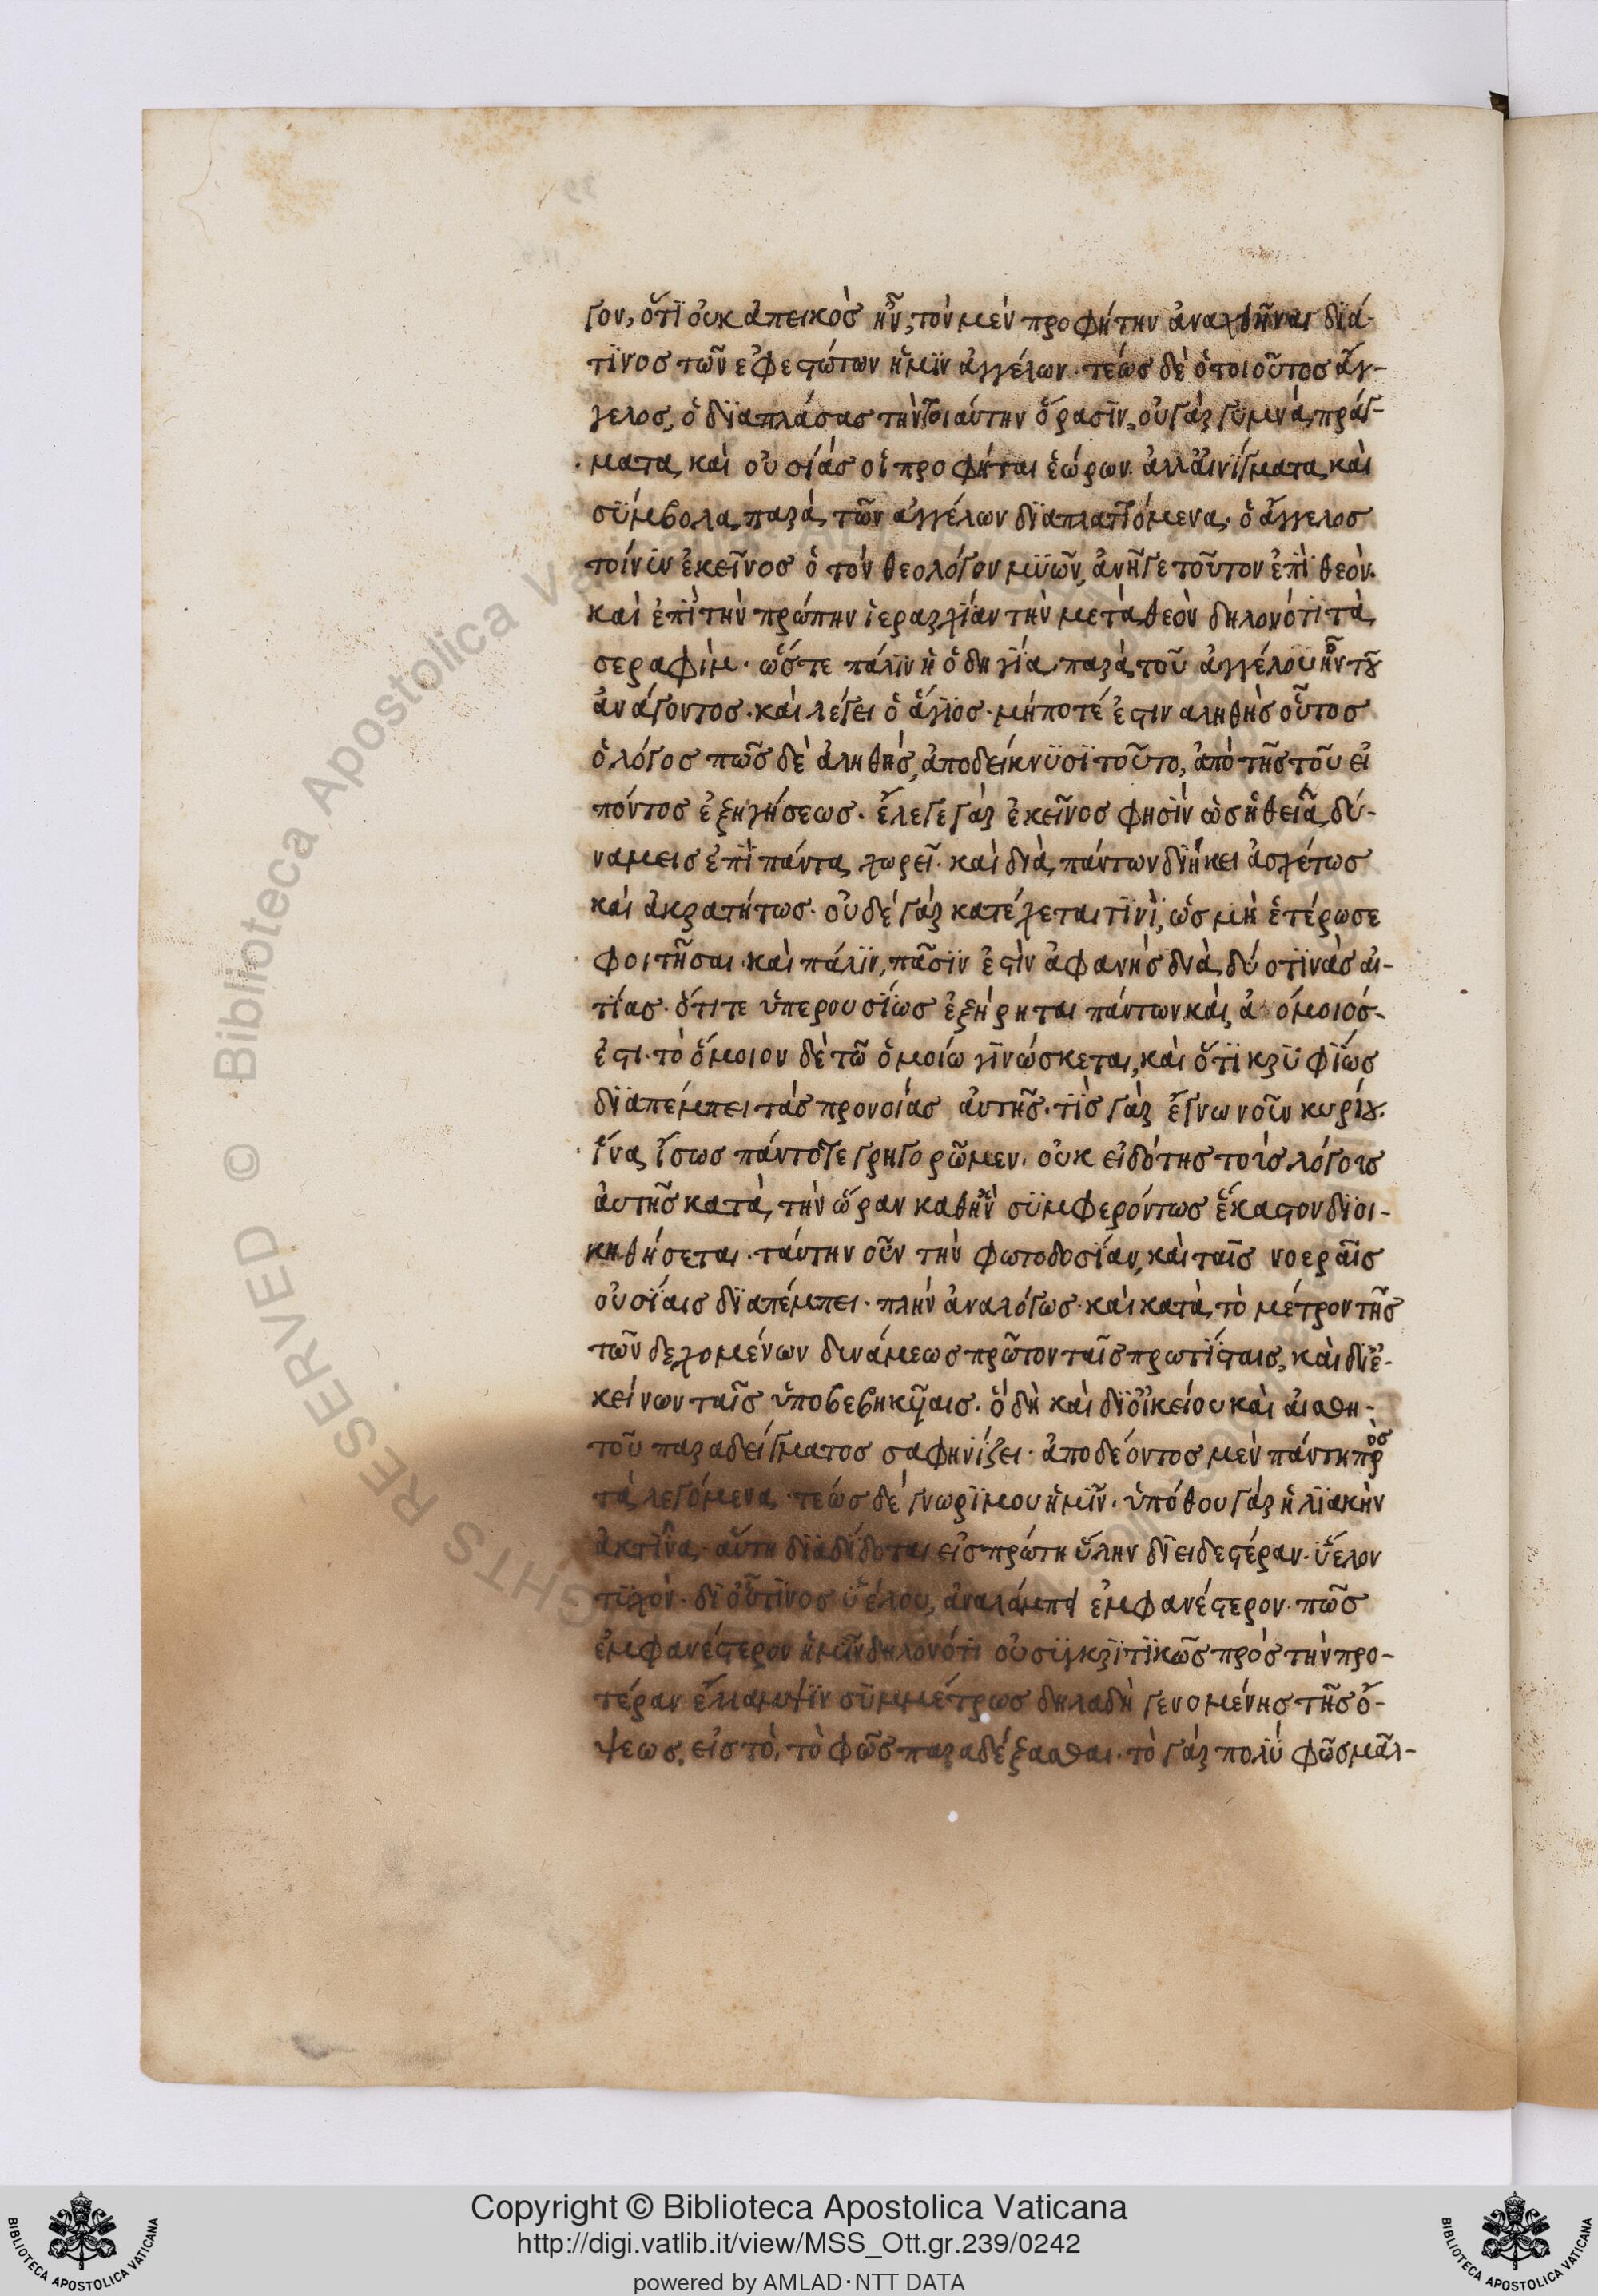 γον, ὅτϊ οὐκ ἀπεικὸσ ἦν, τὸν μὲν προφήτην ἀναχθῆναι διά
τϊνοσ τῶν ἐφεστώτων ἡμῖν ἀγγέλων· τέωσ δὲ ὁ τοιοῦτοσ ἄγ-
γελοσ, ὁ δϊαπλάσασ τὴν τοιαύτην ὅρασϊν, οὐ γὰρ γυμνὰ πράγ-
ματα καὶ οὐσίασ οἱ προφῆται ἑώρων ἀλλ' αἰνίγματα καὶ
σύμβολα παρὰ τῶν ἀγγέλων δϊαπλαττόμενα· ὁ ἄγγελοσ
τοίνυν ἐκεῖνοσ ὁ τὸν θεολόγον μυῶν, ἀνῆγε τοῦτον ἐπὶ θεὸν.
καὶ ἐπὶ τὴν πρώτην ἱεραρχίαν τὴν μετὰ θεὸν δηλονότϊ τὰ
σεραφὶμ· ὥστε πάλϊν ἡ ὁδηγία παρὰ τοῦ ἀγγέλου ἦν τοῦ
ἀνάγοντοσ· καὶ λέγει ὁ ἅγϊοσ· μήποτέ ἐστιν αληθὴσ οὗτοσ
ὁ λόγοσ πῶσ δὲ ἀληθήσ, ἀποδείκνυσϊ τοῦτο, ἀπὸ τῆσ τοῦ εἰ
πόντοσ ἐξηγήσεωσ· ἔλεγε γὰρ ἐκεῖνοσ φησὶν ὡσ ἡ θεία δύ-
ναμεισ ἐπὶ πάντα χωρεῖ· καὶ διὰ πάντων δϊήκει ἀσχέτωσ
καὶ ἀκρατήτωσ· οὐδὲ γὰρ κατέχεται τϊνὶ, ὡσ μὴ ἑτέρωσε
φοιτῆσαι· καὶ πάλϊν, πᾶσϊν ἐστὶν ἀφανὴσ διὰ δύο τϊνὰσ αἰ-
τίασ· ὅτι τε ὑπερουσίωσ ἐξήρηται πάντων καὶ ἀ όμοιόσ-
ἐστι· τὸ ὅμοιον δὲ τῶ ὁμοίω γϊνώσκεται, καὶ ὅτϊ κρυφίωσ
δϊαπέμπει τὰσ προνοίασ αὐτῆσ· τὶσ γὰρ ἔγνω νοῦν κυρίου.
ἵνα ἴσωσ πάντοτε γρηγορῶμεν· οὐκ εἰδότησ τοῖσ λόγοισ
αὐτῆσ κατὰ τὴν ὥραν καθ' ἣν συμφερόντωσ ἕκαστον δϊοι-
κηθήσεται· ταύτην οὖν τὴν φωτοδοσίαν, καὶ ταῖσ νοεραῖσ
οὐσίαισ δϊαπέμπει· πλὴν ἀναλόγωσ· καὶ κατὰ τὸ μέτρον τῆσ
τῶν δεχομένων δυνάμεωσ πρῶτον ταῖσ πρωτίσταισ, καὶ δι' ἐ-
κείνων ταῖσ ὑποβεβηκυίαισ· ὃ δὴ καὶ δι' οἰκείου καὶ αἰσθη-
τοῦ παραδείγματοσ σαφηνίζει· ἀποδέοντοσ μὲν πάντη πρὸσ
τὰ λεγόμενα· τέωσ δὲ γνωρίμου ἡμῖν· ὑπόθου γὰρ ἡλϊακὴν
ἀκτῖνα, αὕτη δϊαδίδοται εἰσ πρώτη ὕλην δϊειδεστέραν· ὕελον
τυχὸν· δι' οὗτϊνοσ ὑέλου, ἀναλάμπει ἐμφανέστερον· πῶσ
ἐμφανέστερον ἡμῖν δηλονότϊ οὐ συγκρϊτϊκῶσ πρὸσ τὴν προ-
τέραν ἔλλαμψϊν συμμέτρωσ δηλαδὴ γενομένησ τῆσ ὄ-
ψεωσ, εἰσ τὸ, τὸ φῶσ παραδέξασθαι· τὸ γὰρ πολὺ φῶσ μᾶλ-
Copyright © Biblioteca Apostolica Vaticana
http://digi.vatlib.it/view/MSS_Ott.gr.239/0242
powered by AMLAD·NTT DATA
BIBLIOTECA APOSTOLICA VATICANA
BIBLIOTECA APOSTOLICA VATICANA